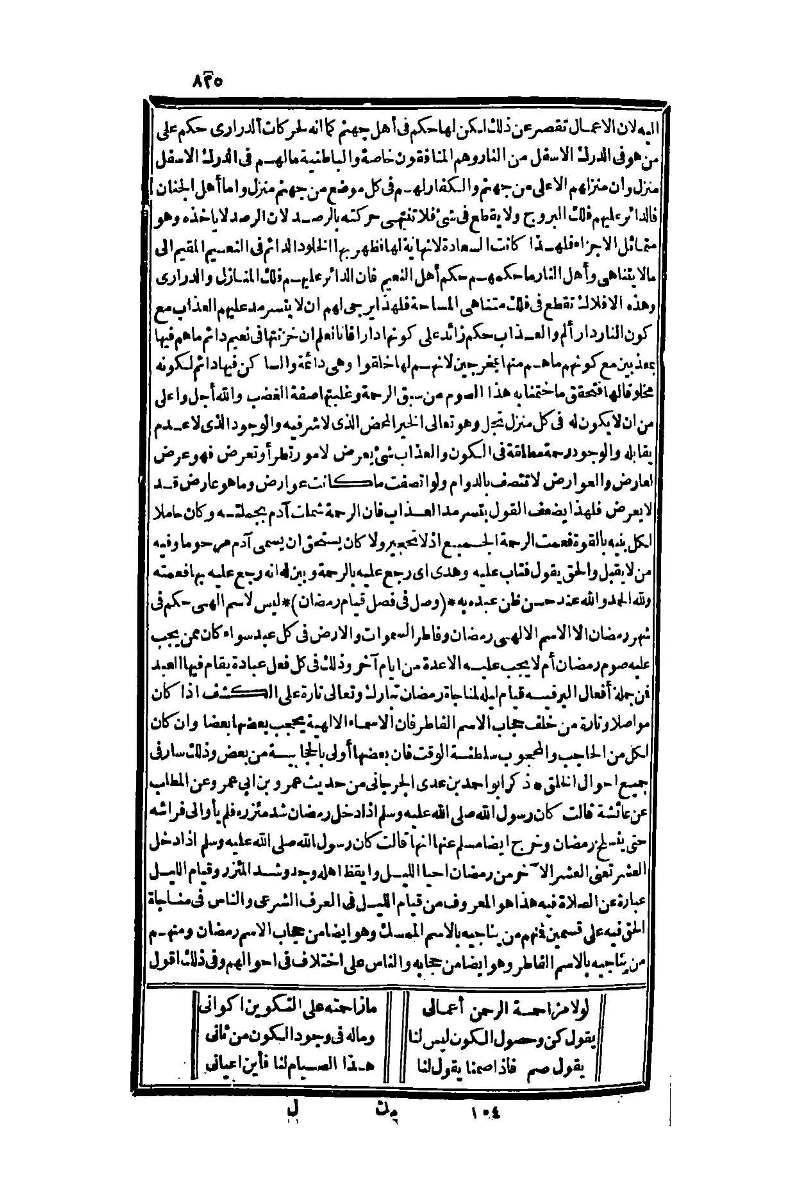 ٨٣٥
اليه لان الاعمال تقصر عن ذلك لكن لها حكم فى أهل جهنم كما انه لحركات الدرارى حكم على
من هو فى الدرك الاسفل من النار وهم المنافقون خاصة والباطنية مالهم فى الدرك الاسفل
منزل وان منزلهم الاعلى من جهنم والكفار لهم فى كل موضع من جهنم منزل واما أهل الجنان
فالدائر عليهم فلك البروج ولا يقطع فى شئ فلا تنتهى حركته بالرصد لان الرصد لا يأخذه وهو
متماثل الاجزاء فلهذا كانت السعادة لا نهاية لها فظهر بها الخلود الدائم فى النعيم المقيم الى
مالا يتناهى وأهل النار ما حكمهم حكم أهل النعيم فان الدائر عليهم فلك المنازل والدرارى
وهذه الافلاك تقطع فى فلك متناهى المساحة فلهذا يرجى لهم ان لا يتسرمد عليهم العذاب مع
كون النار دار ألم والعذاب حكم زائد على كونها دارا فانا نعلم ان خزنتها فى نعيم دائم ما هم فيها
بمعذبين مع كونهم ما هم منها بمخرجين لانهم لها خلقوا وهى دائمة والساكن فيها دائم لكونه
مخلوقا لها فتحقق ما ختمنا به هذا الصوم من سبق الرحمة وغلبتها صفة الغضب والله أجل واعلى
من ان لا يكون له فى كل منزل تجل وهو تعالى الخير المحض الذى لا شر فيه والوجود الذى لا عدم
يقابله والوجود رحمة مطلقة فى الكون والعذاب شئ يعرض لامور تطرأ وتعرض فهو عرض
لعارض والعوارض لا تتصف بالدوام ولو اتصفت ما كانت عوارض وما هو عارض قد
لا يعرض فلهذا يضعف القول بتسرمد العذاب فان الرحمة شملت آدم بجملته وكان حاملا
لكل بنيه بالقوة فعمت الرحمة الجميع اذ لا تحجير ولا كان يستحق ان يسمى آدم مرحوما وفيه
من لا يقبل والحق يقول فتاب عليه وهدى اى رجع عليه بالرحمة وبين له انه رجع عليه بها فعمته
ولله الحمد والله عند حسن ظن عبده به *(وصل فى فصل قيام رمضان)* ليس لاسم الهى حكم فى
شهر رمضان الا الاسم الالهى رمضان وفاطر السموات والارض فى كل عبد سواء كان ممن يجب
عليه صوم رمضان أم لا يجب عليه الا عدة من ايام آخر وذلك فى كل فعل عبادة يقام فيها العبد
فمن جملة أفعال البر فيه قيام ليله لمناجاة رمضان تبارك وتعالى تارة على الكشف اذا كان
مواصلا وتارة من خلف حجاب الاسم الفاطر فان الاسماء الالهية يحجب بعضها بعضا وان كان
لكل من الحاجب والمحجوب سلطنة الوقت فان بعضها أولى بالحجابية من بعض وذلك سار فى
جميع احوال الخلق * ذكر ابو احمد بن عدى الجرجانى من حديث عمرو بن ابى عمرو عن المطلب
عن عائشة قالت كان رسول الله صلى الله عليه وسلم اذا دخل رمضان شد مئزره فلم يأو الى فراشه
حتى ينسلخ رمضان وخرج ايضا مسلم عنها انها قالت كان رسول الله صلى الله عليه وسلم اذا دخل
العشر تعنى العشر الآخر من رمضان احيا الليل وايقظ اهله وجد وشد المئزر وقيام الليل
عبارة عن الصلاة فيه هذا هو المعروف من قيام الليل فى العرف الشرعى والناس فى مناجاة
الحق فيه على قسمين فمنهم من يناجيه بالاسم الممسك وهو ايضا من حجاب الاسم رمضان ومنهم
من يناجيه بالاسم الفاطر وهو ايضا من حجابه والناس على اختلاف فى احوالهم وفى ذلك اقول
لولا مزاحمة الرحمن أعمالى ما زاحمته على التكوين اكوانى
يقول كن وحصول الكون ليس لنا وماله فى وجود الكون من ثانى
يقول صم فاذا صمنا يقول لنا هذا الصيام لنا فأين اعيانى
١٠٤ مك ل